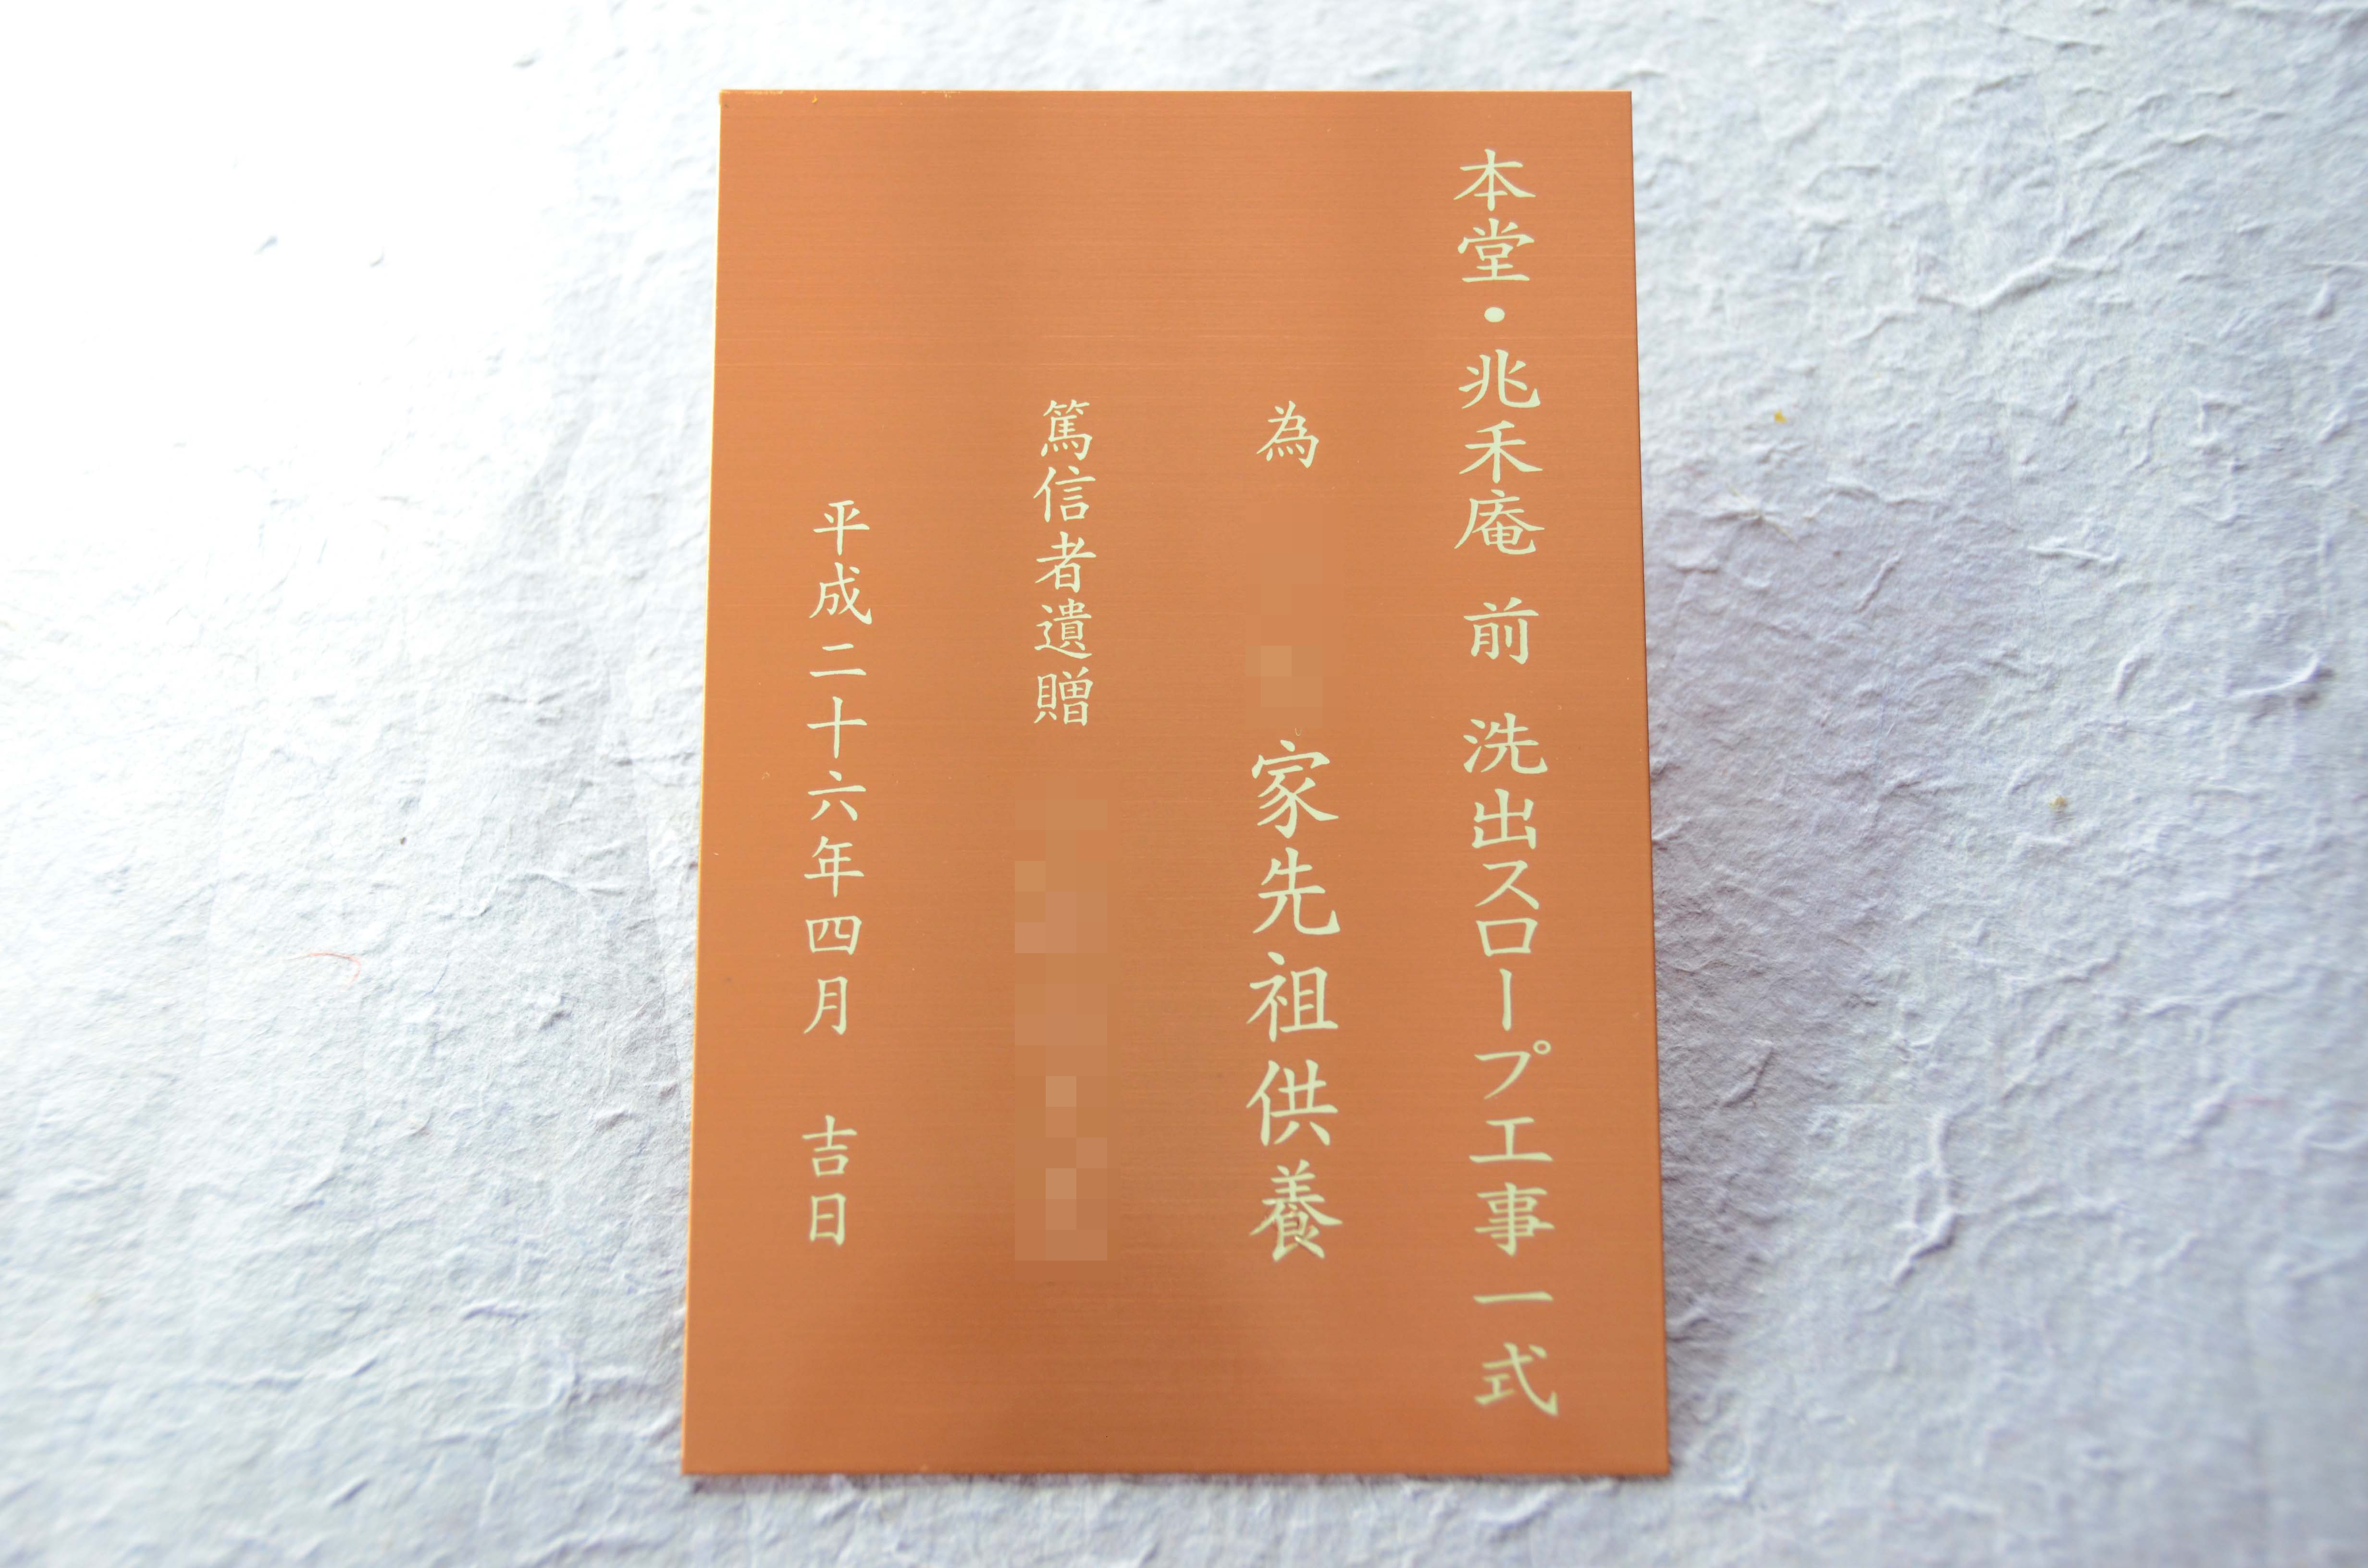 本堂・兆禾庵 前 洗出スロープ工事一式
為 家先祖供養
篤信者遺贈
平成二十六年四月 吉日